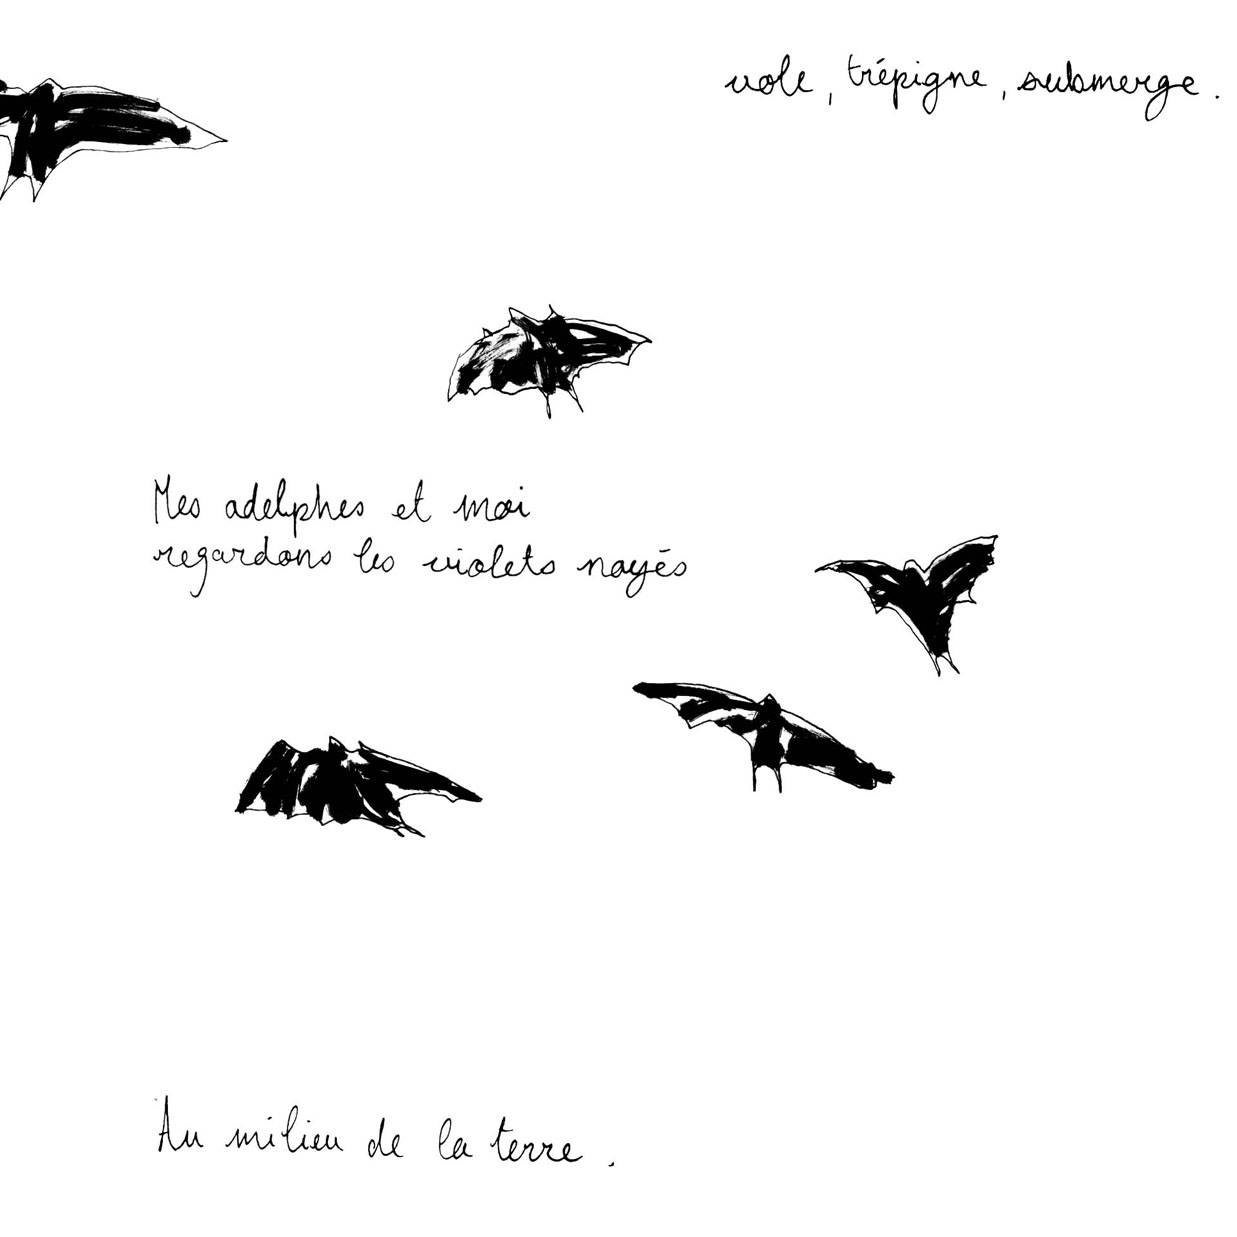 vole, trépigne, submerge.
Mes adelphes et moi
regardons les violets noyés
Au milieu de la terre.